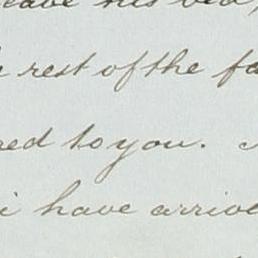 leave his bed,
rest of the fa
ed to you.
i have arrive